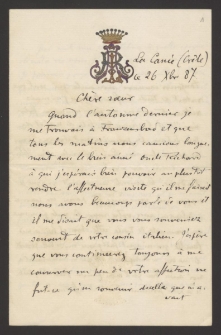 La Canée (Crète)
ce 26 Xbr 87.
Chère sœur
Quand l'automne dernier je
me trouvais à et que
tous les matins nous causions longue-
ment avec le bien aimé oncle
à qui j'espérais bien pouvoir au plutôt
rendre l'affectueuse visite qu'il m'faisait
nous avons beaucoup parlé de vous et
il me disait que vous vous souveniez
souvent de votre cousin italien. J'espère
que vous continuerez toujours à me
conserver un peu de votre affection ne
fut-ce qu'en souvenir de celle que a a-
vait